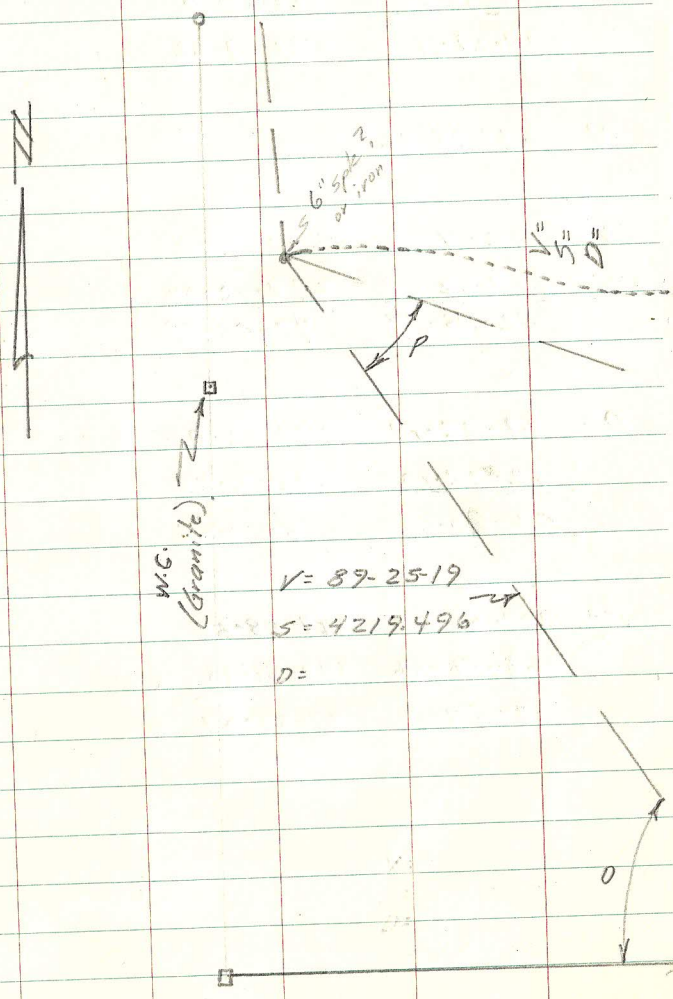 N
6" spke
or iron
V=
S=
D=
P
W.C.
(Granite)
V= 89-25-19
S= 4219.496
D=
O